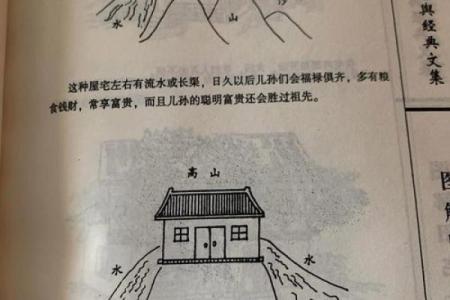 水
山
沙
这种屋宅左右有流水或长渠，日久以后儿孙们会福禄俱齐，多有粮
食钱财，常享富贵，而且儿孙的聪明富贵还会胜过祖先。
高山
水
水
舆经典文集
图解